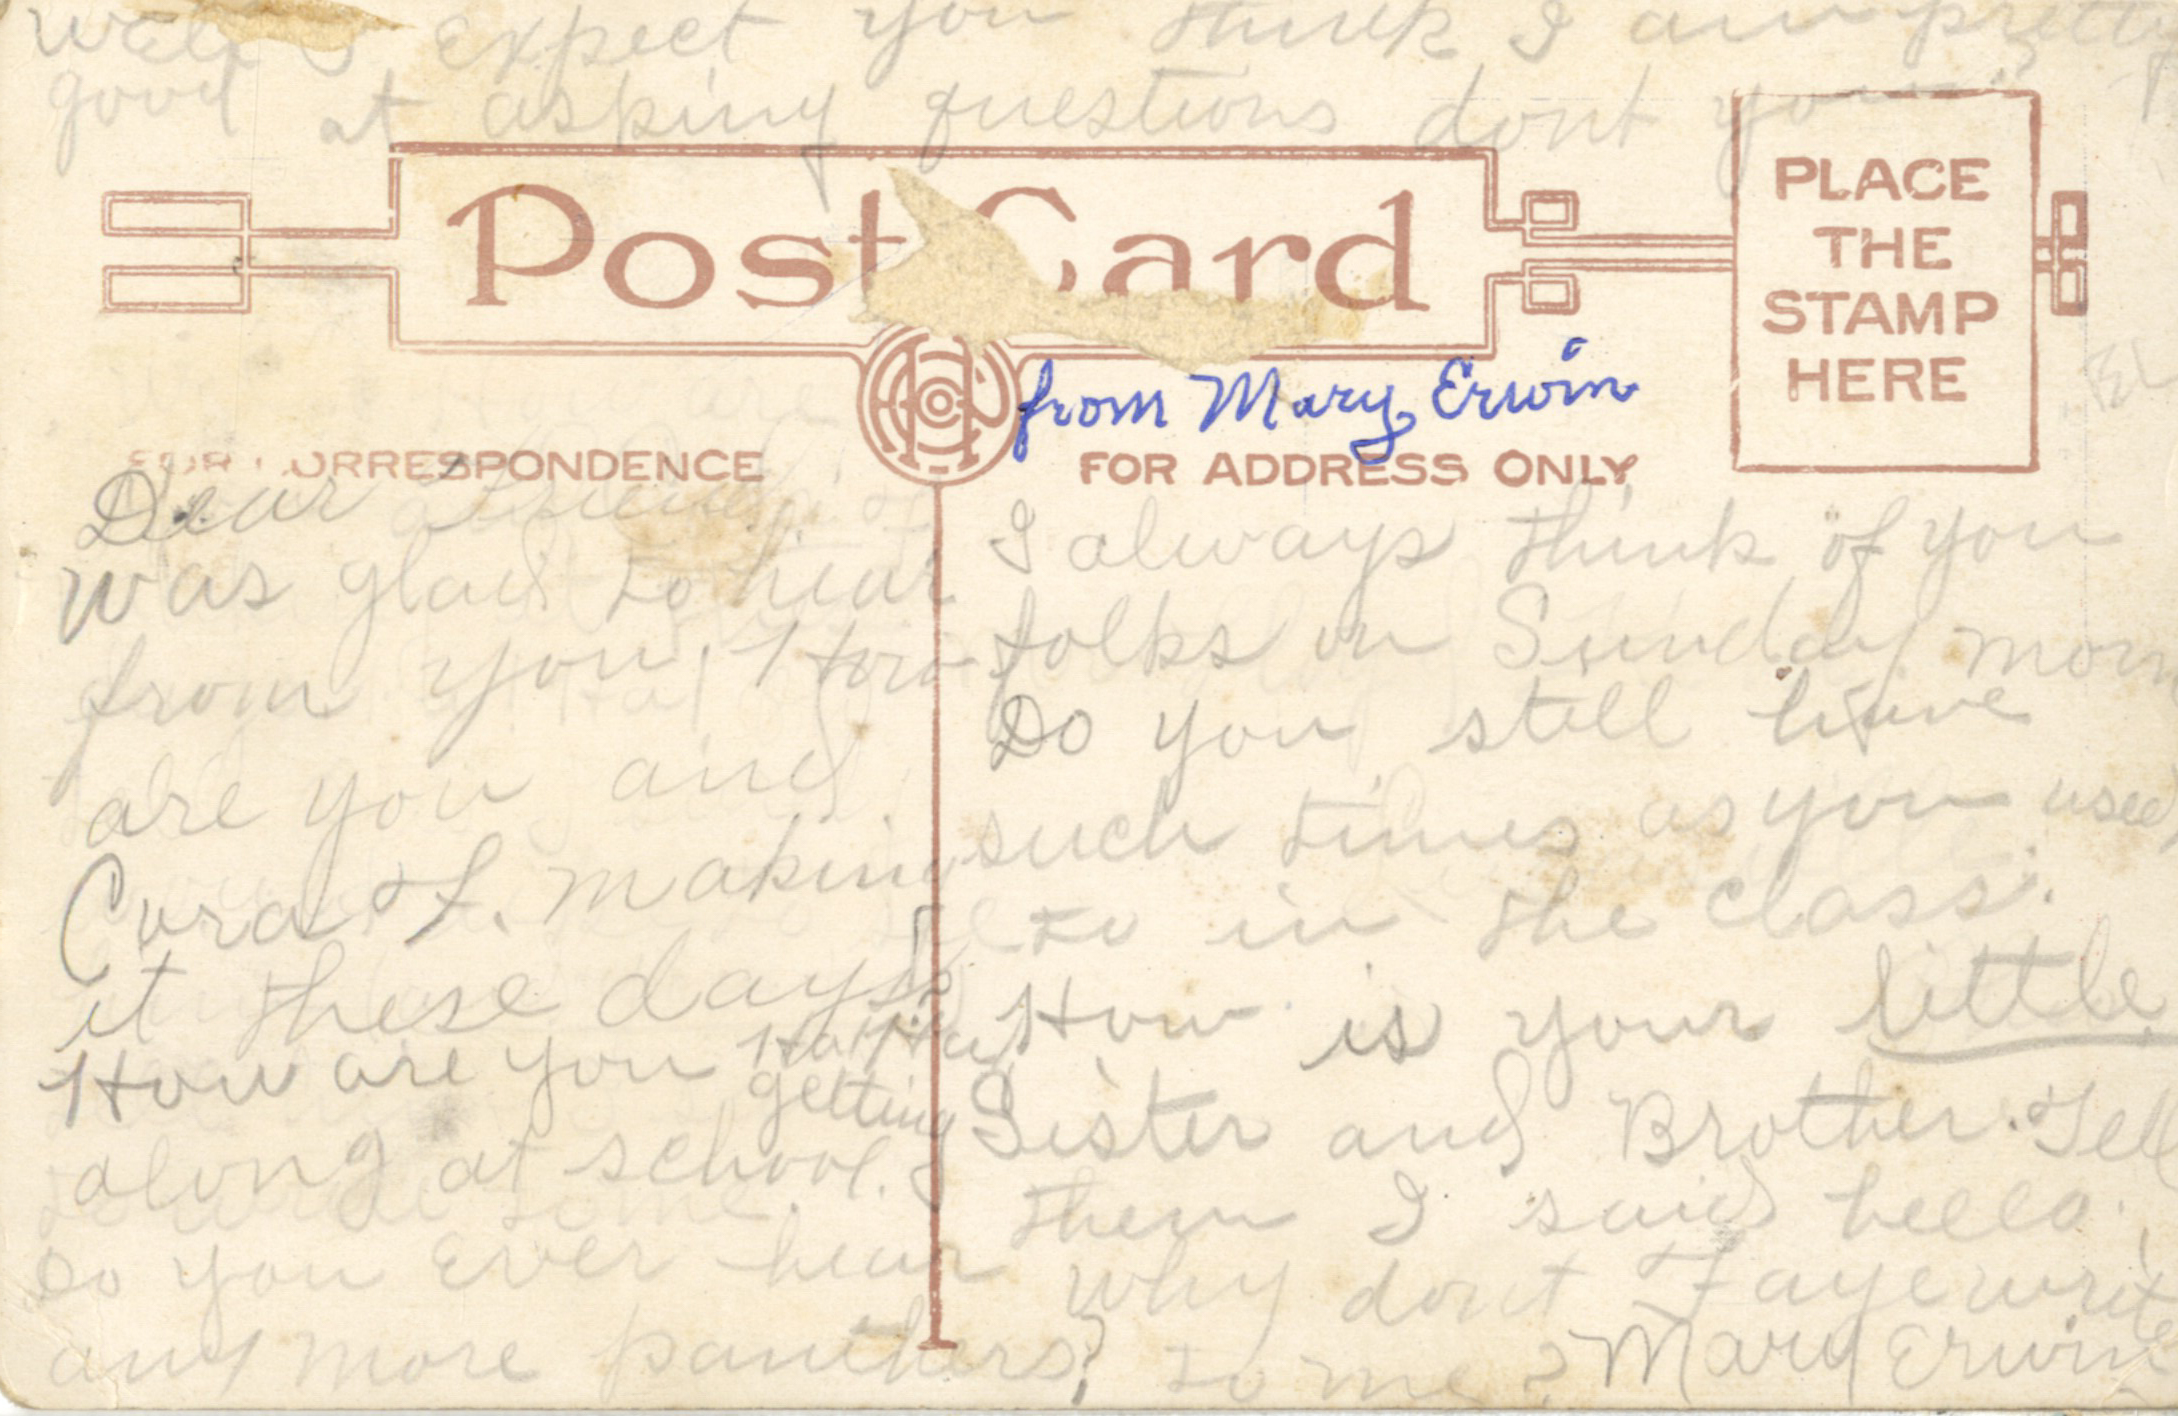 well I expect you think I am pretty
good at asking questions dont you
Post Card
PLACE
THE
STAMP
HERE
from Mary Erwin
FOR CORRESPONDENCE
FOR ADDRESS ONLY
Dear Friend
was glad to hear
from you, How
are you and
Cora T. making
it these days?
How are you
getting
along at school.
Do you ever hear
any more panthers?
I always think of you
folks on Sunday morn
Do you still have
such times as you used
to in the class.
How is your little
Sister and Brother. Tell
them I said hello.
Why dont Faye write
to me? Mary Erwin